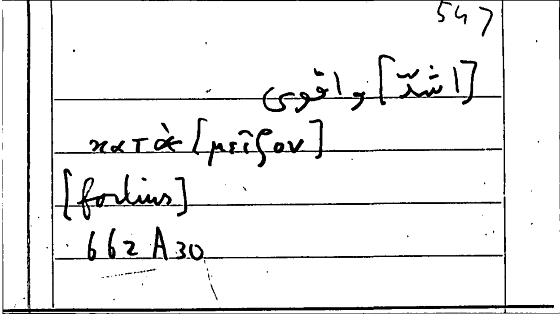 547
[اشدّ] واقوى
κατὰ [μεῖζον]
[fortius]
662 A 30